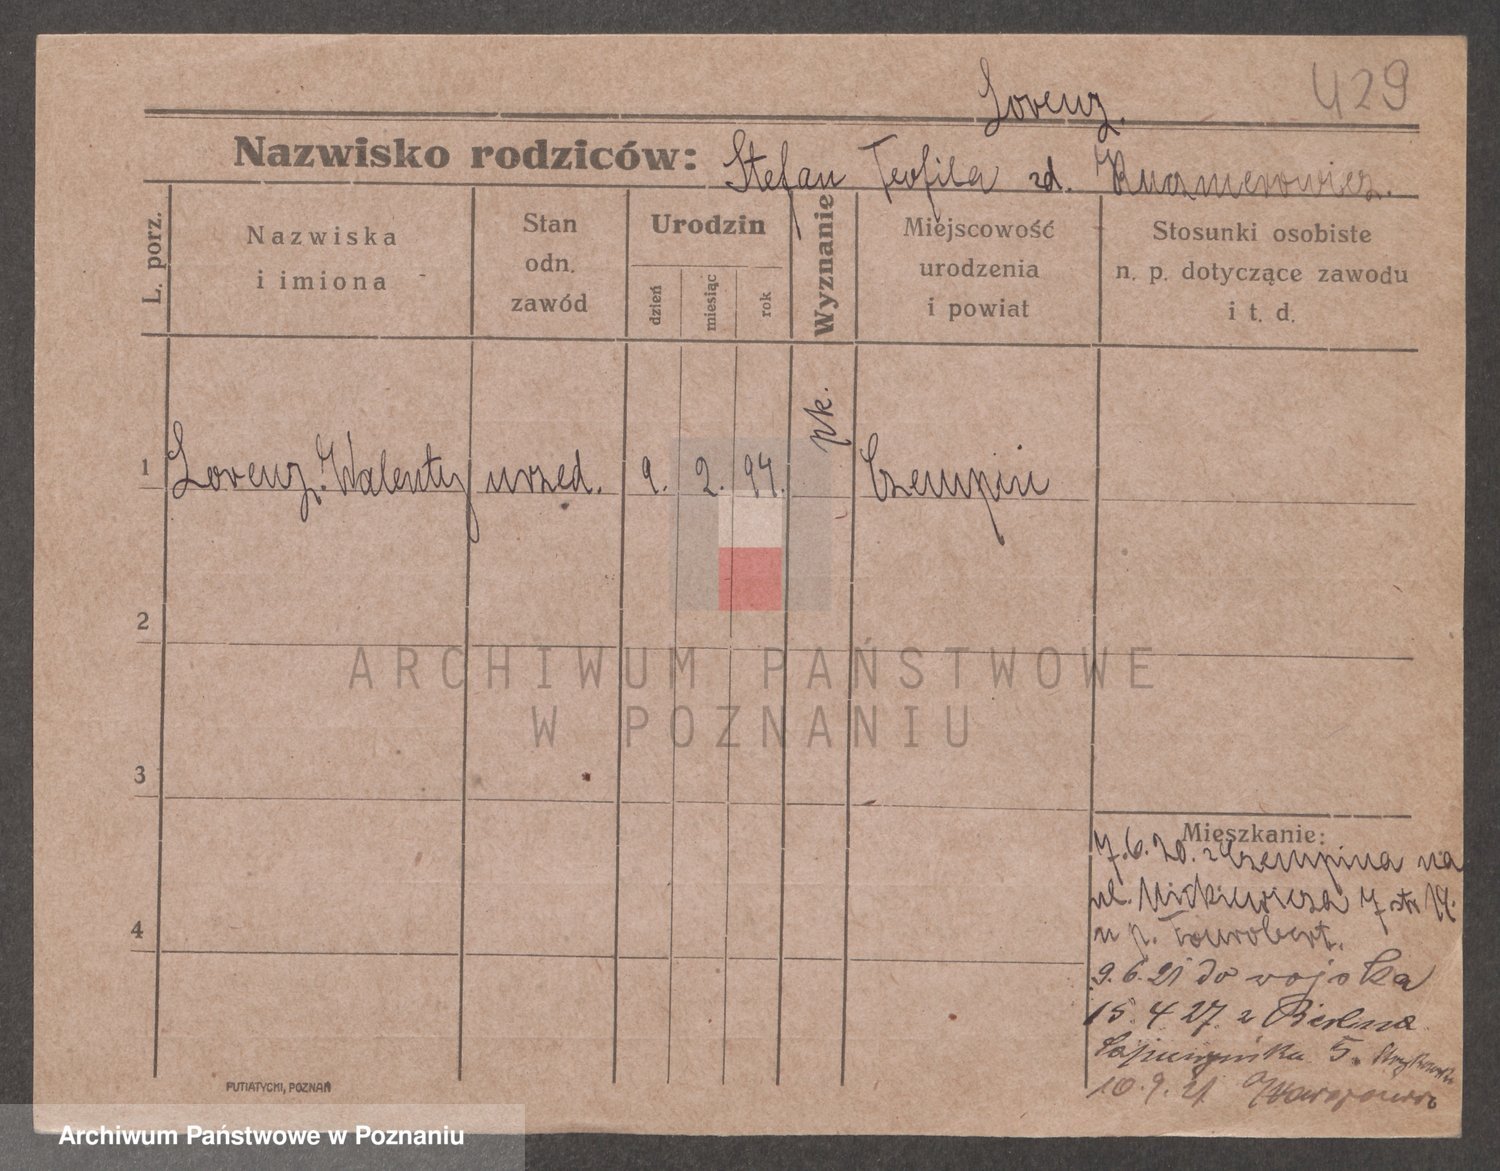 429
Lorenz.
Nazwisko rodziców: Stefan Teofila zd. Kuzmerowicz.
L. porz.
Nazwiska
i imiona
Stan
odn.
zawód
Urodzin
dzień
miesiąc
rok
Wyznanie
Miejscowość
urodzenia
i powiat
Stosunki osobiste
n. p. dotyczące zawodu
i t. d.
1 Lorenz. Walenty urzed. 9. 2. 94. pk. Czempiń
2
3
4
Mieszkanie:
7.6.20. z Czempina na
ul. Mickiewicza 7
u p.
9.6.21 do wojska
15.4.27. z Berlina
5.
10.9.
PUTIATYCKI, POZNAŃ
ARCHIWUM PAŃSTWOWE
W POZNANIU
Archiwum Państwowe w Poznaniu